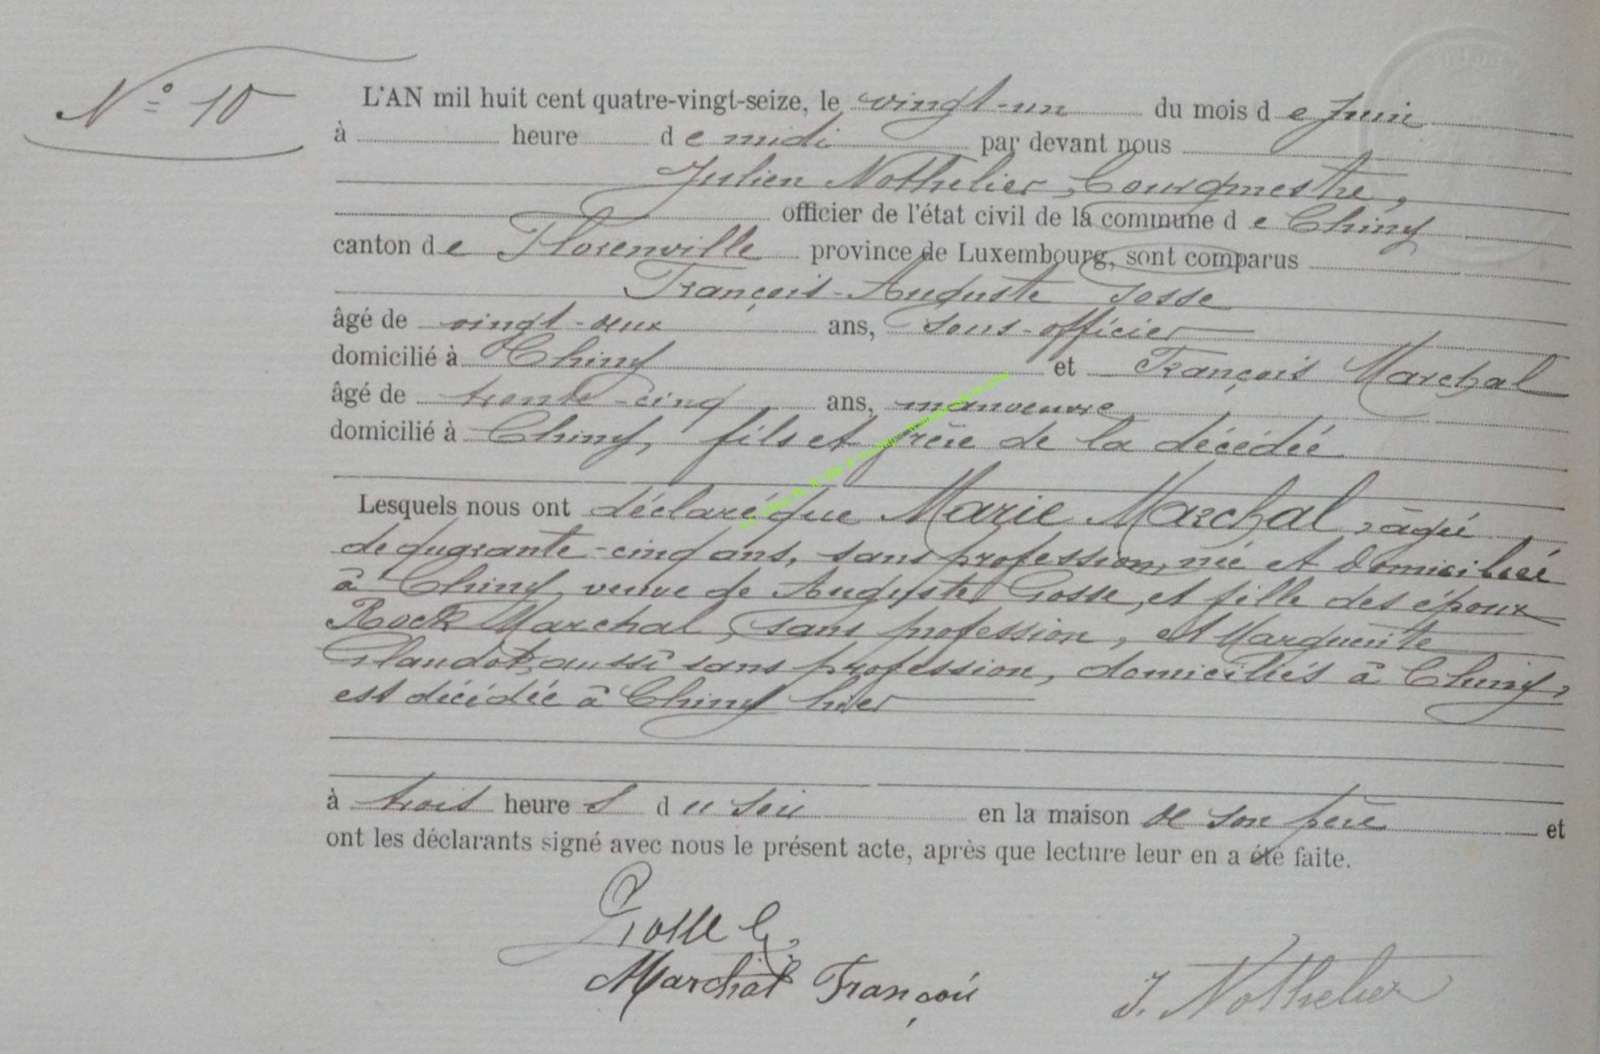 N° 10
L'AN mil huit cent quatre-vingt-seize, le vingt-un du mois de Juin
à heure de midi par devant nous
Julien Nothelier, bourgmestre,
officier de l'état civil de la commune de Chiny
canton de Florenville province de Luxembourg, sont comparus
François-Auguste Gosse
âgé de vingt-deux ans, sous-officier
domicilié à Chiny et François Marchal
âgé de trente-cinq ans, manoeuvre
domicilié à Chiny, fils et frère de la décédée
Lesquels nous ont déclaré que Marie Marchal, âgée
de quarante-cinq ans, sans profession, née et domiciliée
à Chiny, veuve de Auguste Gosse, et fille des époux
Rock Marchal, sans profession, et Marguerite
Glaudot, aussi sans profession, domiciliés à Chiny,
est décédée à Chiny hier
à trois heures du soir en la maison de son père et
ont les déclarants signé avec nous le présent acte, après que lecture leur en a été faite.
Gosse
Marchal François J. Nothelier